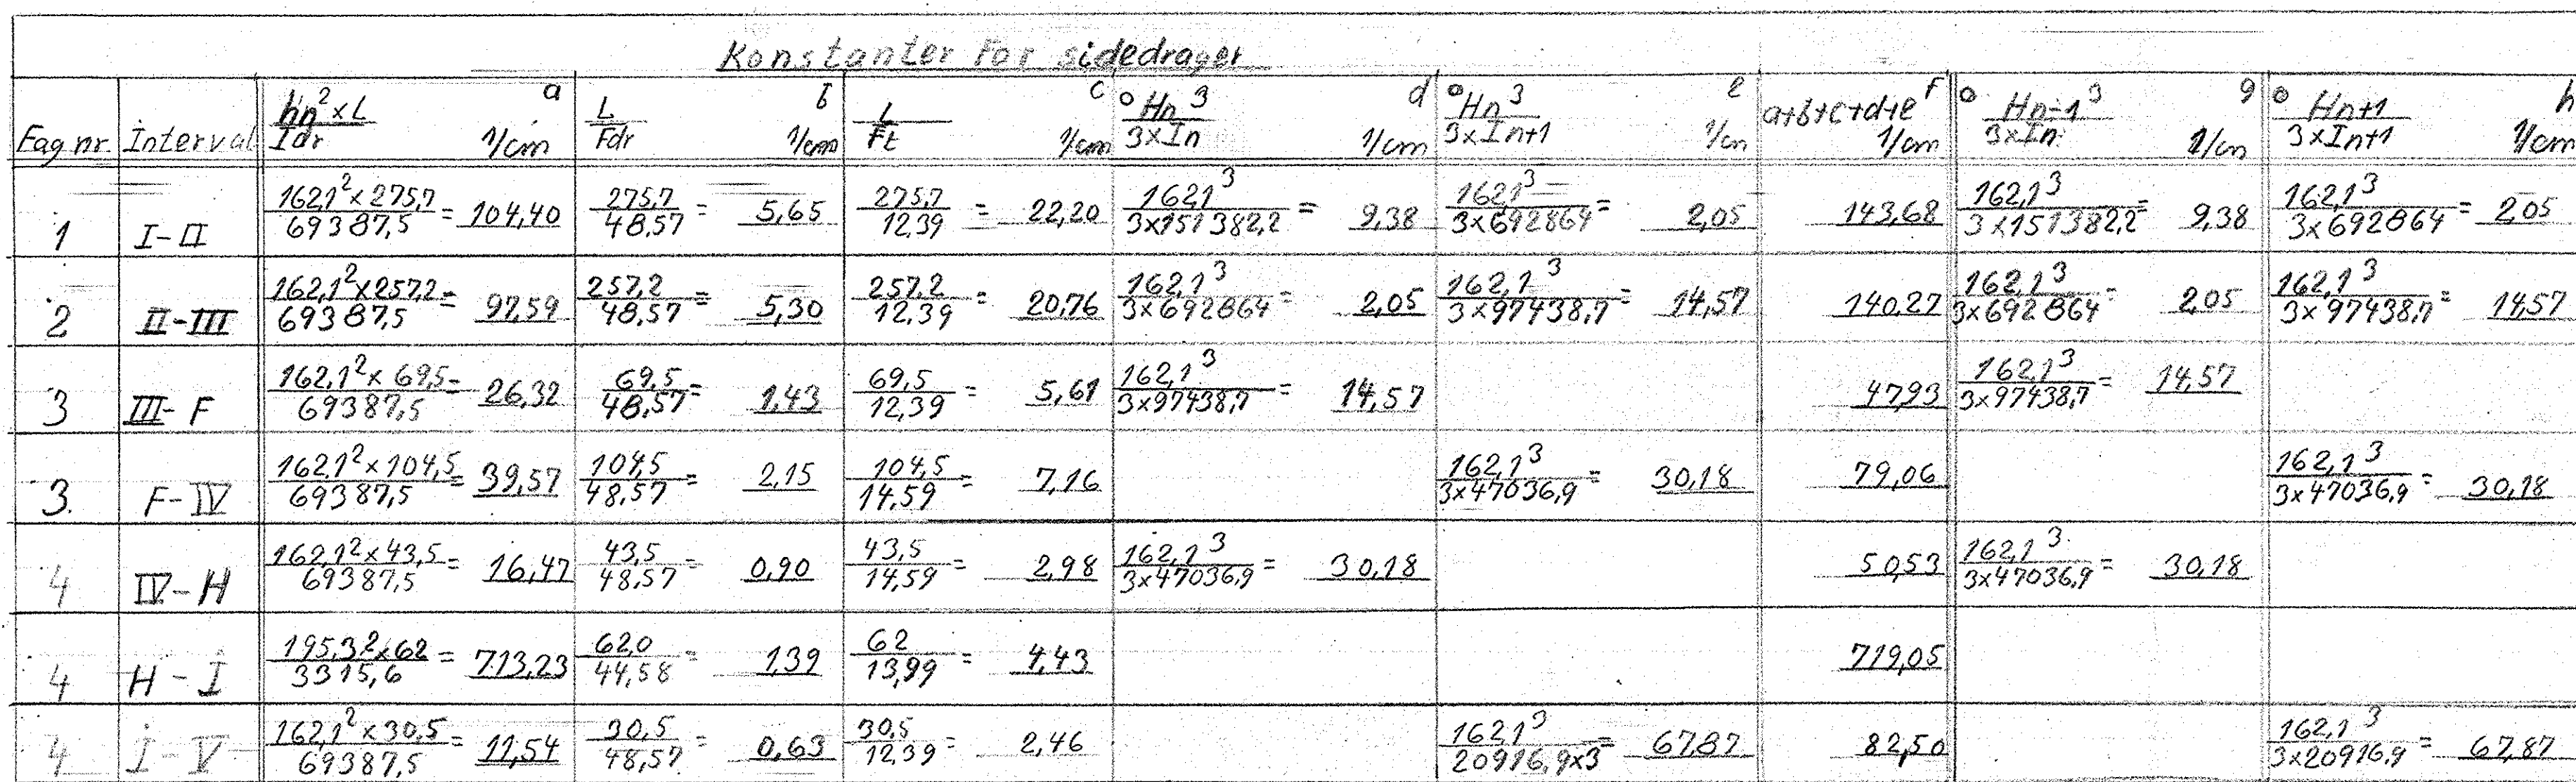 Konstanter for sidedrager
Fag nr. Interval hn²×L / Idr a 1/cm L / Fdr b 1/cm L / Ft c 1/cm Hn³ / 3×In d 1/cm Hn³ / 3×In+1 e 1/cm a+b+c+d+e f 1/cm Hn-1³ / 3×In g 1/cm Hn+1 / 3×In+1 h 1/cm
1 I-II 162,1²×275,7 / 69387,5 = 104,40 275,7 / 48,57 = 5,65 275,7 / 12,39 = 22,20 162,1³ / 3×151382,2 = 9,38 162,1³ / 3×692864 = 2,05 143,68 162,1³ / 3×151382,2 = 9,38 162,1³ / 3×692864 = 2,05
2 II-III 162,1²×257,2 / 69387,5 = 97,59 257,2 / 48,57 = 5,30 257,2 / 12,39 = 20,76 162,1³ / 3×692864 = 2,05 162,1³ / 3×97438,7 = 14,57 140,27 162,1³ / 3×692864 = 2,05 162,1³ / 3×97438,7 = 14,57
3 III-F 162,1²×69,5 / 69387,5 = 26,32 69,5 / 48,57 = 1,43 69,5 / 12,39 = 5,61 162,1³ / 3×97438,7 = 14,57 47,93 162,1³ / 3×97438,7 = 14,57
3. F-IV 162,1²×104,5 / 69387,5 = 39,57 104,5 / 48,57 = 2,15 104,5 / 14,59 = 7,16 162,1³ / 3×47036,9 = 30,18 79,06 162,1³ / 3×47036,9 = 30,18
4 IV-H 162,1²×43,5 / 69387,5 = 16,47 43,5 / 48,57 = 0,90 43,5 / 14,59 = 2,98 162,1³ / 3×47036,9 = 30,18 50,53 162,1³ / 3×47036,9 = 30,18
4 H-I 195,3²×62 / 3315,6 = 713,23 62,0 / 44,58 = 1,39 62 / 13,99 = 4,43 719,05
4 I-V 162,1²×30,5 / 69387,5 = 11,54 30,5 / 48,57 = 0,63 30,5 / 12,39 = 2,46 162,1³ / 20916,9×3 = 67,87 82,50 162,1³ / 3×20916,9 = 67,87